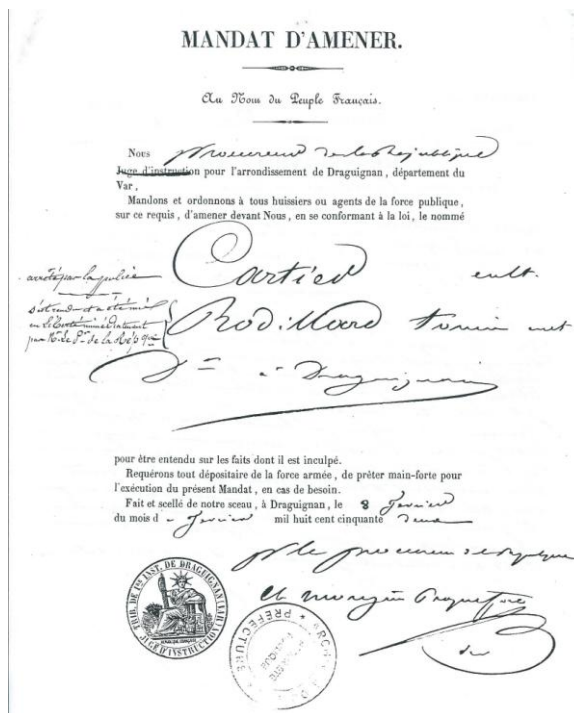 MANDAT D'AMENER.
Au Nom du Peuple Français.
Nous Procureur de la République
Juge d'instruction pour l'arrondissement de Draguignan, département du
Var,
Mandons et ordonnons à tous huissiers ou agents de la force publique,
sur ce requis, d'amener devant Nous, en se conformant à la loi, le nommé
arrêté par la police
Cartier cult.
s'est rendu et a été mis
en liberté immédiatement
par Mr. le Pr. de la Rép que
Rodillard
à Draguignan
pour être entendu sur les faits dont il est inculpé.
Requérons tout dépositaire de la force armée, de prêter main-forte pour
l'exécution du présent Mandat, en cas de besoin.
Fait et scellé de notre sceau, à Draguignan, le 8 Janvier
du mois d Janvier mil huit cent cinquante deux
le procureur de la République
TRIB. DE 1re INST. DE DRAGUIGNAN (VAR)
RÉPUBLIQUE FRANÇAISE
JUGE D'INSTRUCTION
PREFECTURE